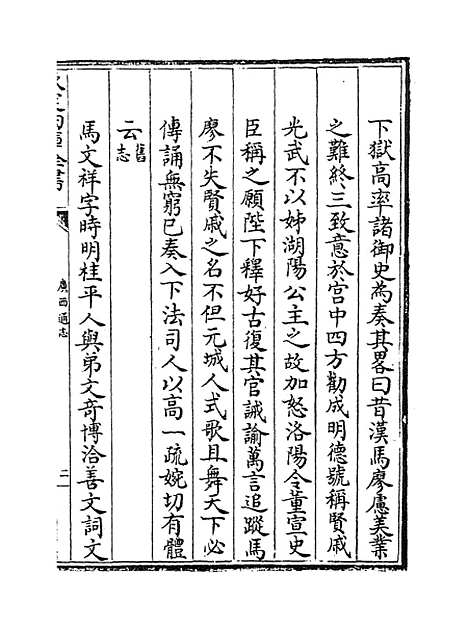 下獄高率諸御史為奏其畧曰昔漢馬廖慮美業
之難終三致意於宫中四方勸成明德號稱賢戚
光武不以姊湖陽公主之故加怒洛陽令董宣史
臣稱之願陛下釋好古復其官誠諭萬言追蹤馬
廖不失賢戚之名不但元城人式歌且舞天下必
傳誦無窮已奏入下法司人以高一疏婉切有體
云舊志
馬文祥字時明桂平人與弟文竒博洽善文詞文
廣西通志
二